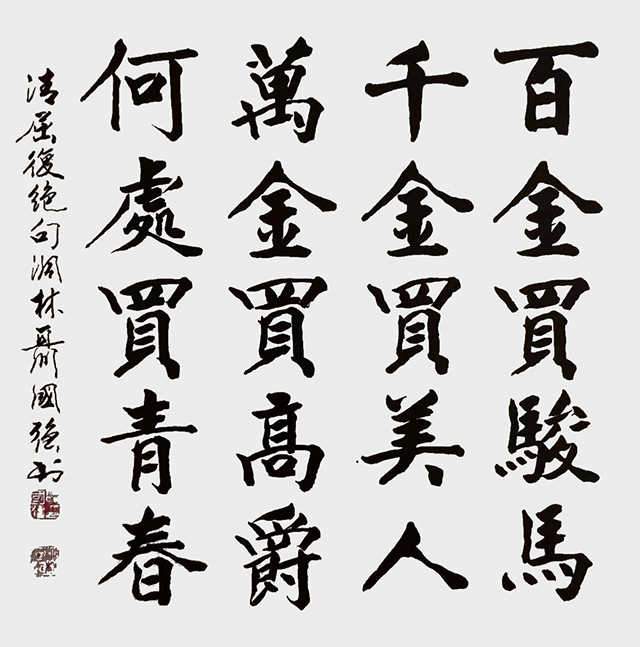 百金買駿馬
千金買美人
萬金買高爵
何處買青春
清屈復絕句洞林聶國強書